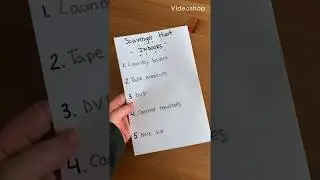 Videoshop
Scavenger Hunt
- INDOORS -
1. Laundry basket
2. Tape measure
3. DVD
4. Canned tomatoes
5. Neck tie